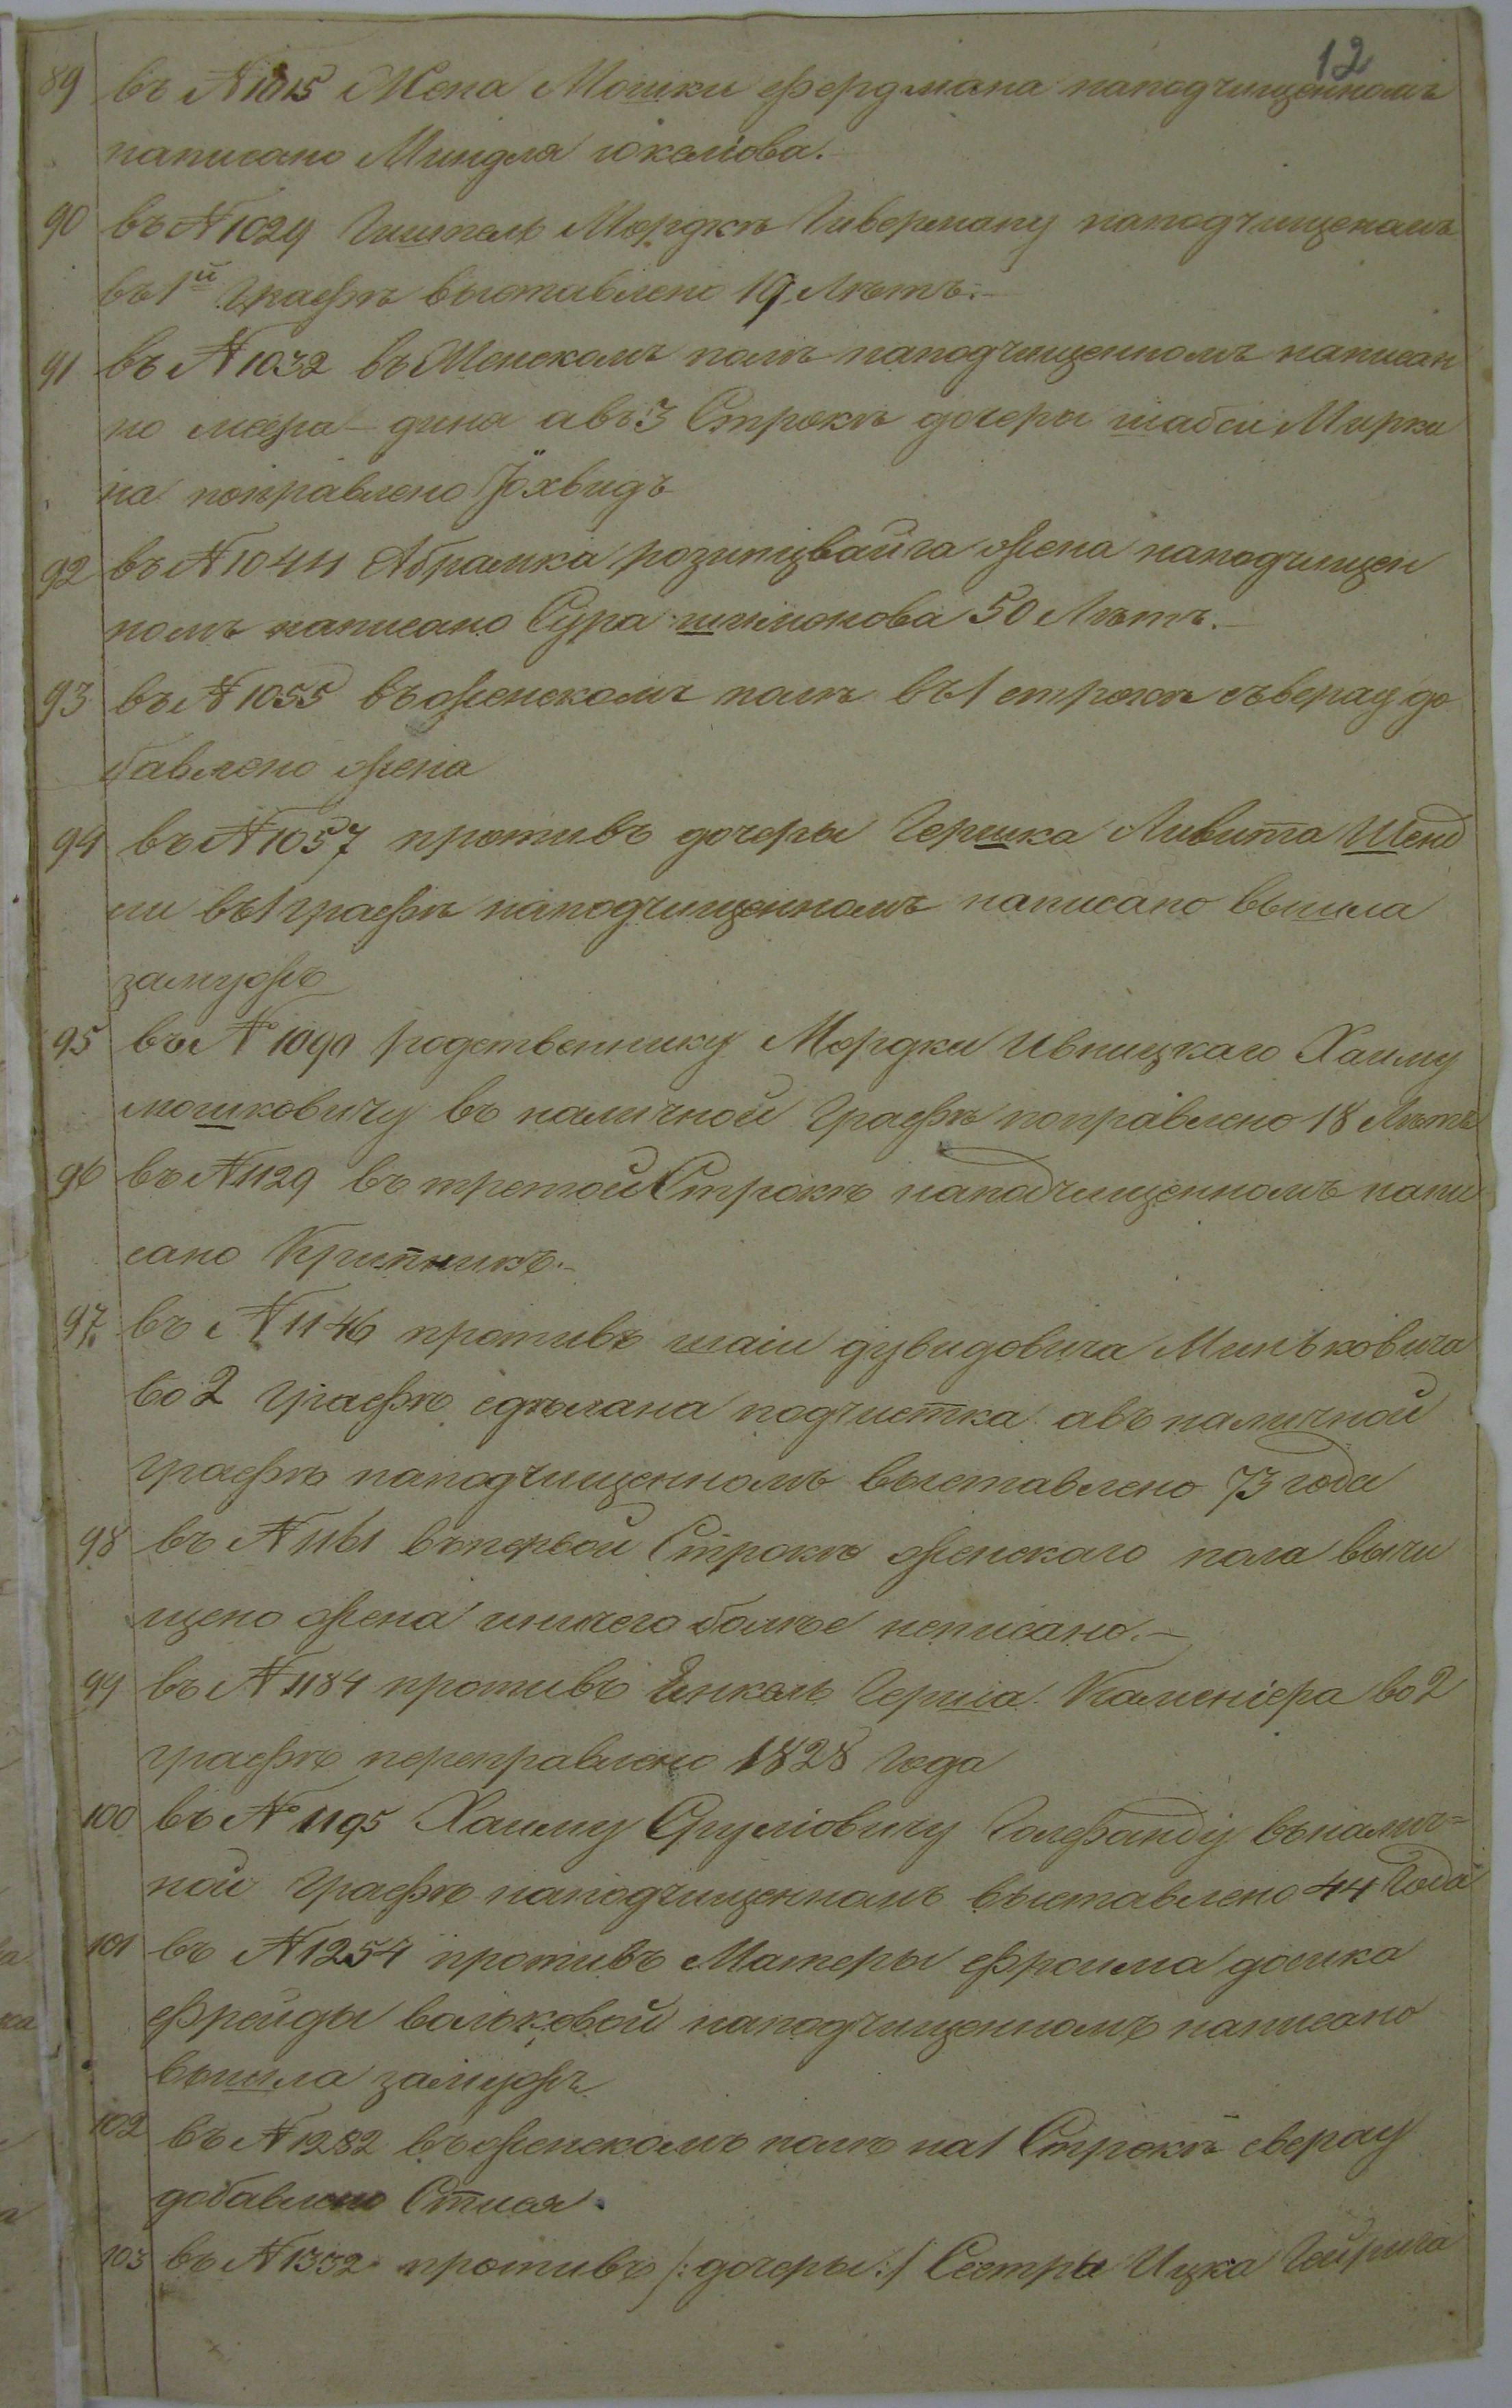 12
89 въ №1015 Жена Мошки Фердмана наподчищенномъ
написано Миндля юкелiова.
90 въ №1029 Гиитель Мордкѣ Гиверману наподчищеномъ
въ1й Графѣ выставлено 19 Лѣтъ.—
91 въ №1032 въ Женскомъ полѣ наподчищенномъ написан
но меэра - дина авъ 3 Строкѣ дочеры шабси Мирки
на поправлено Іохвидъ
92 въ №1044 Абрамка розинцвайга жена наподчищен
номъ написано Сура шимонова 50 Лѣтъ.—
93 въ №1055 въ женскомъ полѣ въ1 строкѣ съверху до
бавлено жена
94 въ №1057 противъ дочеры Гершка Ливита Шенд
ли въ1 графѣ наподчищенномъ написано вышла
замужъ
95 въ №1090 родственнику Мордки Ивницкаго Хаиму
мошковичу въ наличной Графѣ поправлено 18 Лѣтъ
96 въ №1129 въ третой Строкѣ наподчищенномъ напи
сано Крипникъ.—
97. въ №1146 противъ шаiи дувидовича Минъковича
во 2 Графѣ сдѣлана подчистка авъ наличной
графѣ наподчищенномъ выставлено 73 года
98 въ №1161 въ первой Строкѣ женскаго пола вычи
щено жена иничего болѣе неписано.—
99 въ №1184 противъ Янкель Герша Каменiера во 2
графѣ переправлено 1828 года
100 въ №1195 Хаиму Сруліовичу Голефанду въ налич=
ной Графѣ наподчищенномъ выставлено 44 Года
101 въ №1254 противъ Матеры Фроима дошка
Фрейды вольковой наподчищенномъ написано
вышла замужъ
102 въ №1282 въ женскомъ полѣ на1 Строкѣ сверху
добавлено Стися.
103 въ №1332 противъ /:дочеры:/ Сестры Ицка Гойриха